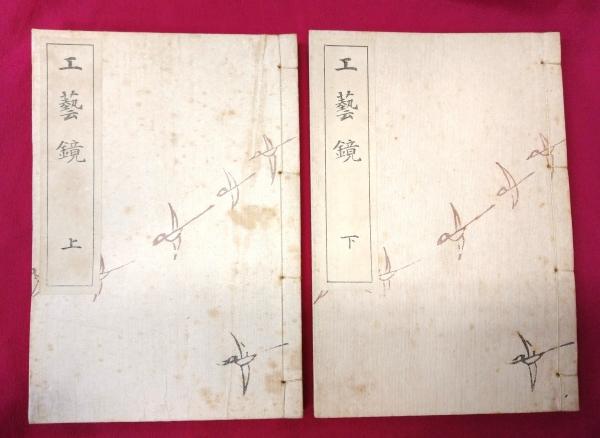 工藝鏡 上
工藝鏡 下